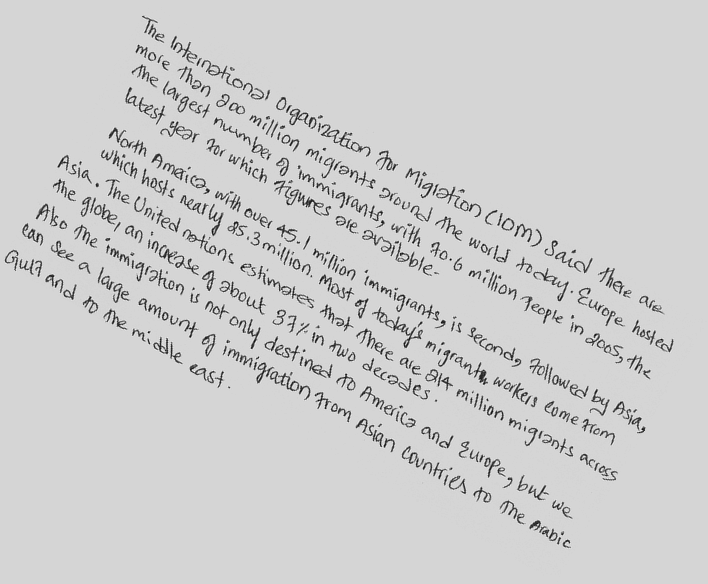 The International Organization for Migration (IOM) Said there are
more than 200 million migrants around the world today. Europe hosted
the largest number of immigrants, with 70.6 million people in 2005, the
latest year for which figures are available.
North America, with over 45.1 million immigrants, is second, followed by Asia,
which hosts nearly 25.3 million. Most of today's migrants workers come from
Asia. The United nations estimates that there are 214 million migrants across
the globe, an increase of about 37% in two decades.
Also the immigration is not only destined to America and Europe, but we
can see a large amount of immigration from Asian countries to the Arabic
Gulf and to the middle east.